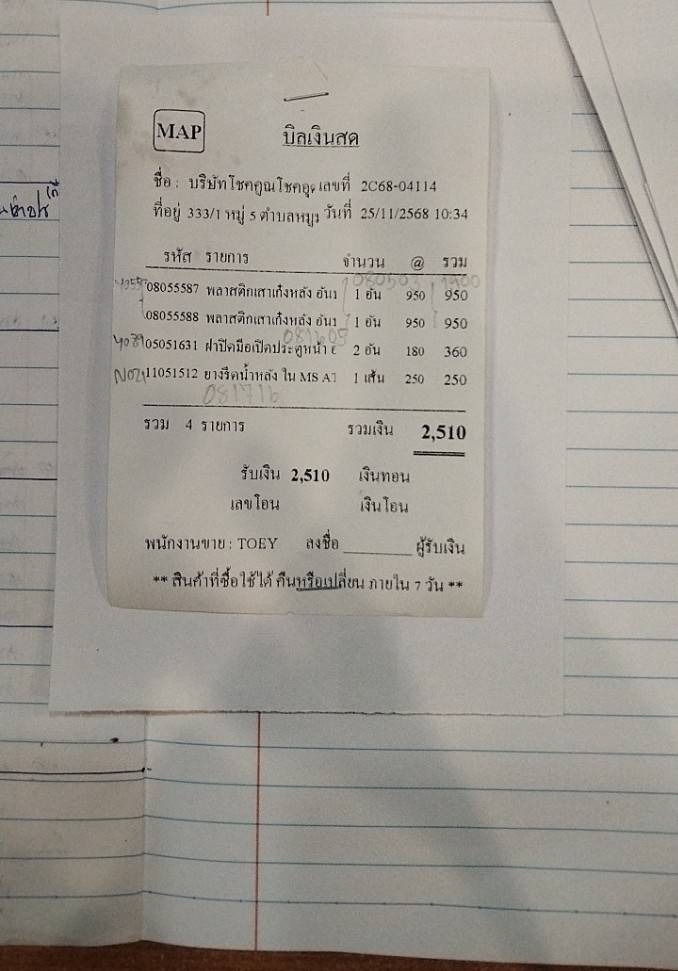 MAP
บิลเงินสด
ชื่อ : บริษัทโชคคูณโชค เลขที่ 2C68-04114
ที่อยู่ 333/1 หมู่ 5 ตำบล วันที่ 25/11/2568 10:34
รหัส รายการ จำนวน @ รวม
080503 1900
08055587 พลาสติกเสาเก๋งหลัง อัน1 1 อัน 950 950
08055588 พลาสติกเสาเก๋งหลัง อัน1 1 อัน 950 950
081605
05051631 ฝาปิดมือเปิดประตูหน้า 2 อัน 180 360
11051512 ยางรีดน้ำหลัง ใน MS A 1 เส้น 250 250
081716
รวม 4 รายการ รวมเงิน 2,510
รับเงิน 2,510 เงินทอน
เลขโอน เงินโอน
พนักงานขาย : TOEY ลงชื่อ ผู้รับเงิน
** สินค้าที่ซื้อไปใช้ได้ คืนหรือเปลี่ยน ภายใน 7 วัน **